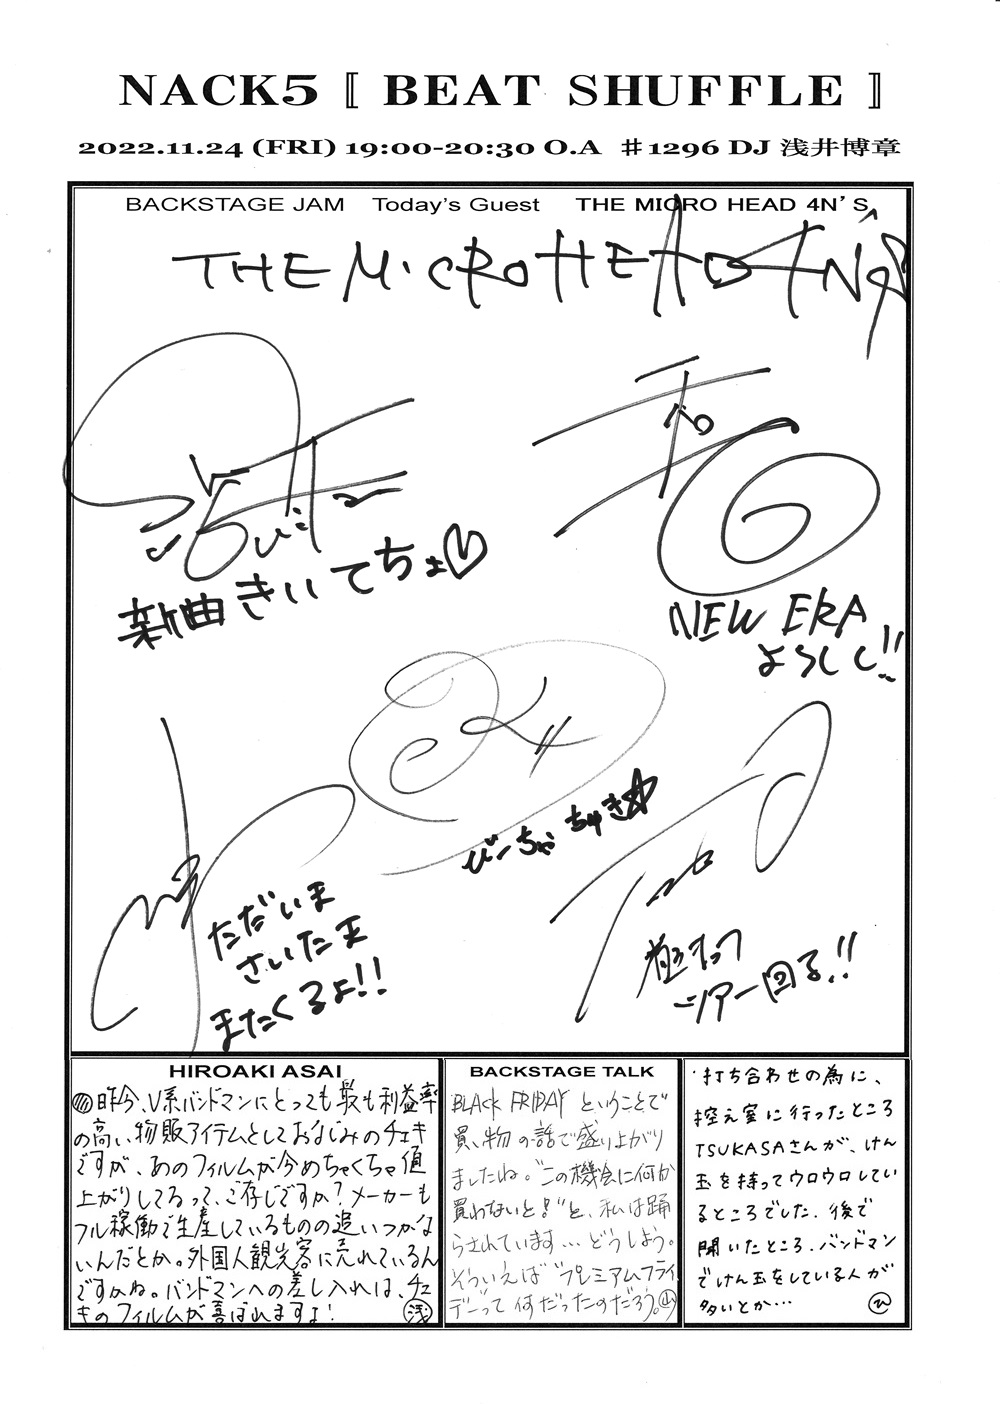 NACK5 〚 BEAT SHUFFLE 〛
2022.11.24 (FRI) 19:00-20:30 O.A ♯1296 DJ 浅井博章
BACKSTAGE JAM Today's Guest THE MICRO HEAD 4N'S
THE MICRO HEAD 4N'S
新曲きいてちょ♡
NEW ERA
よろしく!!
びーちゃちゅき☆
ただいま
さいた玉
またくるよ!!
ツアー回る!!
HIROAKI ASAI
昨今、V系バンドマンにとっても最も利益率
の高い、物販アイテムとしておなじみのチェキ
ですが、あのフィルムが今めちゃくちゃ値
上がりしてるって、ご存じですか?メーカーも
フル稼働で生産しているものの追いつかな
いんだとか。外国人観光客に売れているん
ですかね。バンドマンへの差し入れは、チェ
キのフィルムが喜ばれますよ! 浅
BACKSTAGE TALK
BLACK FRIDAY ということで
買い物の話で盛り上がり
ましたね。"この機会に何か
買わないと!"と、私は踊
らされています…どうしよう。
そういえば"プレミアムフライ
デー"って何だったのだろう。山
打ち合わせの為に、
控え室に行ったところ
TSUKASAさんが、けん
玉を持ってウロウロしてい
るところでした。後で
聞いたところ、バンドマン
でけん玉をしている人が
多いとか… ひ